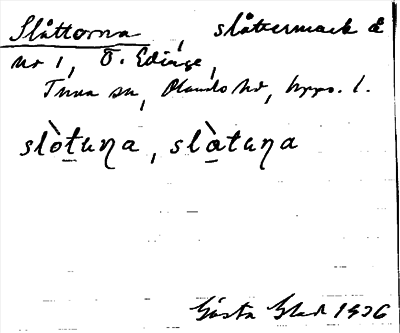 Slåttorna, slåttermark å
nr 1, Ö. Edinge,
Tuna sn, Olands hd, Upps. l.
slò̱tuṇa, slà̱tuṇa
Gösta Glad 1936